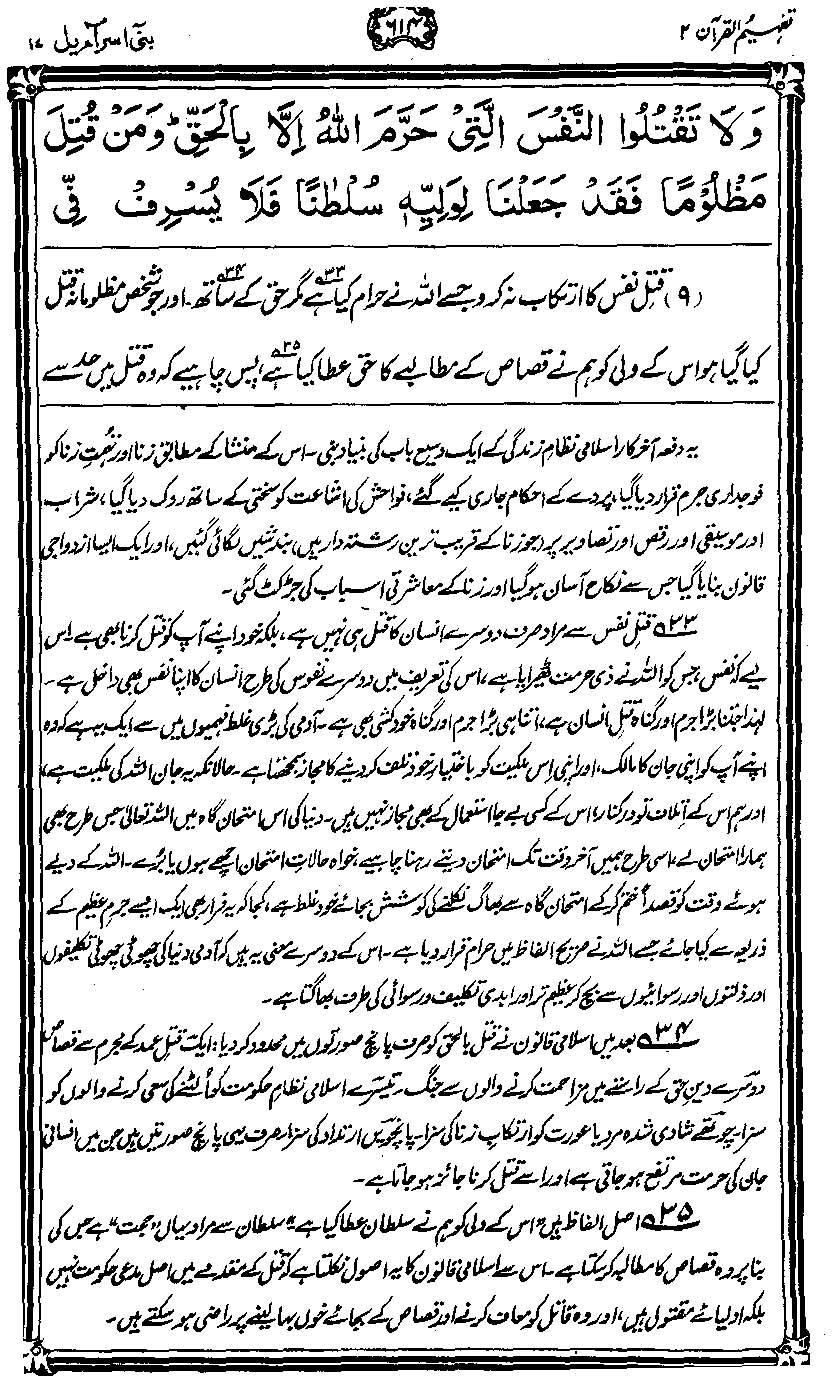 تفہیم القرآن ۲
۶۱۴
بنی اسرآءیل ۱۷
وَلَا تَقْتُلُوا النَّفْسَ الَّتِیْ حَرَّمَ اللّٰهُ اِلَّا بِالْحَقِّ ؕ وَمَنْ قُتِلَ
مَظْلُوْمًا فَقَدْ جَعَلْنَا لِوَلِیِّهٖ سُلْطٰنًا فَلَا یُسْرِفْ فِّی
(۹) قتلِ نفس کا ارتکاب نہ کرو جسے اللہ نے حرام کیا ہے۳۳ مگر حق کے ساتھ۳۴۔ اور جو شخص مظلومانہ قتل
کیا گیا ہو اس کے ولی کو ہم نے قصاص کے مطالبے کا حق عطا کیا ہے۳۵، پس چاہیے کہ وہ قتل میں حد سے
یہ دفعہ آخرکار اسلامی نظامِ زندگی کے ایک وسیع باب کی بنیاد بنی۔ اس کے منشا کے مطابق زنا اور تہمتِ زنا کو
فوجداری جرم قرار دیا گیا، پردے کے احکام جاری کیے گئے، فواحش کی اشاعت کو سختی کے ساتھ روک دیا گیا، شراب
اور موسیقی اور رقص اور تصاویر پر (جو زنا کے قریب ترین رشتہ دار ہیں) بندشیں لگائی گئیں، اور ایک ایسا ازدواجی
قانون بنایا گیا جس سے نکاح آسان ہو گیا اور زنا کے معاشرتی اسباب کی جڑ کٹ گئی۔
۳۳ قتلِ نفس سے مراد صرف دوسرے انسان کا قتل ہی نہیں ہے، بلکہ خود اپنے آپ کو قتل کرنا بھی ہے۔ اس
لیے کہ نفس، جس کو اللہ نے ذی حرمت ٹھیرایا ہے، اس کی تعریف میں دوسرے نفوس کی طرح انسان کا اپنا نفس بھی داخل ہے۔
لہٰذا جتنا بڑا جرم اور گناہ قتلِ انسان ہے، اتنا ہی بڑا جرم اور گناہ خودکشی بھی ہے۔ آدمی کی بڑی غلط فہمیوں میں سے ایک یہ ہے کہ وہ
اپنے آپ کو اپنی جان کا مالک، اور اپنی اس ملکیت کو باختیارِ خود تلف کر دینے کا مجاز سمجھتا ہے۔ حالانکہ یہ جان اللہ کی ملکیت ہے،
اور ہم اس کے اتلاف تو درکنار، اس کے کسی بے جا استعمال کے بھی مجاز نہیں ہیں۔ دنیا کی اس امتحان گاہ میں اللہ تعالیٰ جس طرح بھی
ہمارا امتحان لے، اسی طرح ہمیں آخر وقت تک امتحان دیتے رہنا چاہیے، خواہ حالاتِ امتحان اچھے ہوں یا بُرے۔ اللہ کے دیے
ہوئے وقت کو قصداً ختم کر کے امتحان گاہ سے بھاگ نکلنے کی کوشش بجائے خود غلط ہے، کجا کہ یہ فرار بھی ایک ایسے جرمِ عظیم کے
ذریعہ سے کیا جائے جسے اللہ نے صریح الفاظ میں حرام قرار دیا ہے۔ اس کے دوسرے معنی یہ ہیں کہ آدمی دنیا کی چھوٹی چھوٹی تکلیفوں
اور ذلتوں اور رسوائیوں سے بچ کر عظیم تر اور ابدی تکلیف و رسوائی کی طرف بھاگتا ہے۔
۳۴ بعد میں اسلامی قانون نے قتل بالحق کو صرف پانچ صورتوں میں محدود کر دیا: ایک قتلِ عمد کے مجرم سے قصاص
دوسرے دینِ حق کے راستے میں مزاحمت کرنے والوں سے جنگ۔ تیسرے اسلامی نظامِ حکومت کو اُلٹنے کی سعی کرنے والوں کو
سزا۔ چوتھے شادی شدہ مرد یا عورت کو ارتکابِ زنا کی سزا۔ پانچویں ارتداد کی سزا۔ صرف یہی پانچ صورتیں ہیں جن میں انسانی
جان کی حرمت مرتفع ہو جاتی ہے اور اسے قتل کرنا جائز ہو جاتا ہے۔
۳۵ اصل الفاظ ہیں "اس کے ولی کو ہم نے سلطان عطا کیا ہے" سلطان سے مراد یہاں "حجت" ہے جس کی
بنا پر وہ قصاص کا مطالبہ کر سکتا ہے۔ اس سے اسلامی قانون کا یہ اصول نکلتا ہے کہ قتل کے مقدمے میں اصل مدعی حکومت نہیں
بلکہ اولیائے مقتول ہیں، اور وہ قاتل کو معاف کرنے اور قصاص کے بجائے خوں بہا لینے پر راضی ہو سکتے ہیں۔